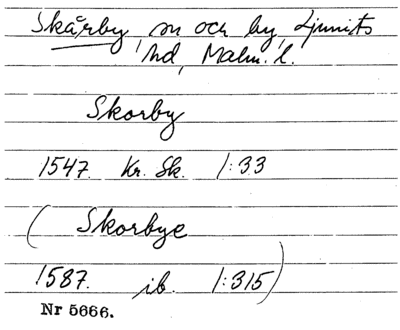 Skårby, sn och by, Ljunits
hd, Malm. l.
Skorby
1547. Kr. Sk. 1:33
( Skorbye
1587. ib. 1:315)
Nr 5666.